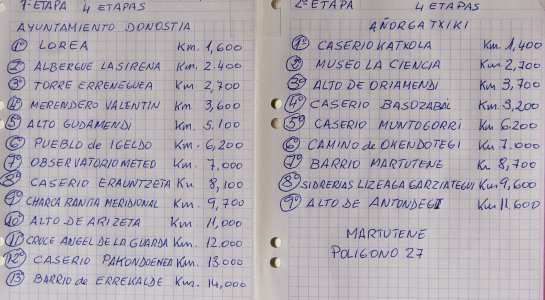 1ª ETAPA 4 ETAPAS
AYUNTAMIENTO DONOSTIA
1º LOREA Km. 1,600
2º ALBERGUE LA SIRENA Km. 2.400
3º TORRE ERRENEGUEA Km. 2,700
4º MERENDERO VALENTIN Km. 3,600
5º ALTO GUDAMENDI Km. 5.100
6º PUEBLO de IGELDO Km. 6,200
7º OBSERVATORIO METEO Km. 7.000
8º CASERIO ERAUNTZETA Km 8,100
9º CHARCA RANITA MERIDIONAL Km. 9,700
10º ALTO DE ARIZETA Km. 11,000
11º CRUCE ANGEL DE LA GUARDA Km. 12.000
12º CASERIO PAKONDOENEA Km. 13.000
13º BARRIO de ERREKALDE Km. 14,000
2ª ETAPA 4 ETAPAS
AÑORGA TXIKI
1º CASERIO KATXOLA Km. 1,400
2º MUSEO LA CIENCIA Km 2,700
3º ALTO DE ORIAMENDI Km 3,700
4º CASERIO BASOZABAL Km. 5,200
5º CASERIO MUNTOGORRI Km 6.200
6º CAMINO de OKENDOTEGI Km 7.000
7º BARRIO MARTUTENE Km 8,700
8º SIDRERIAS LIZEAGA GARZIATEGUI Km 9,600
9º ALTO DE ANTONDEGI Km 11.600
MARTUTENE
POLIGONO 27